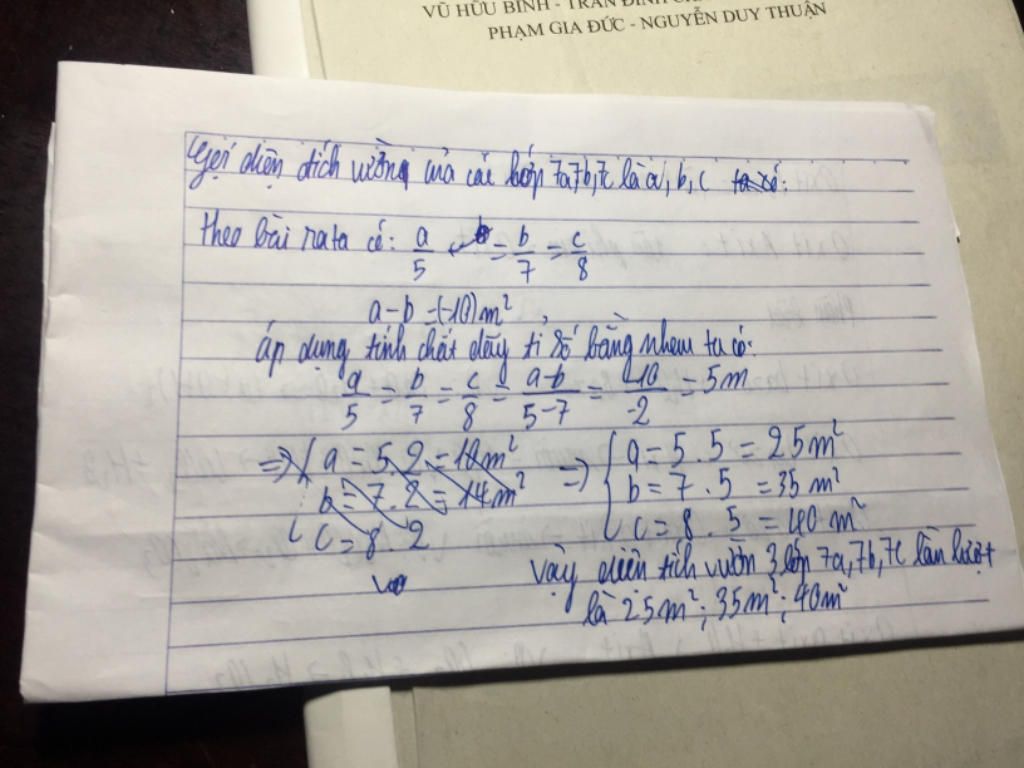 VŨ HỮU BÌNH - TRẦN ĐÌNH
PHẠM GIA ĐỨC - NGUYỄN DUY THUẬN
Gọi diện tích vườn của các lớp 7a,7b,7c là a, b, c ta có:
theo bài ra ta có: a/5 = b/7 = c/8
a-b = (-10) m²
áp dụng tính chất dãy tỉ số bằng nhau ta có:
a/5 = b/7 = c/8 = a-b/5-7 = -10/-2 = 5m
=> { a = 5.2 = 10m² => { a = 5.5 = 25m²
b = 7.2 = 14m² b = 7.5 = 35m²
c = 8.2 c = 8.5 = 40m²
Vậy diện tích vườn 3 lớp 7a,7b,7c lần lượt
là 25m²; 35m²; 40m²